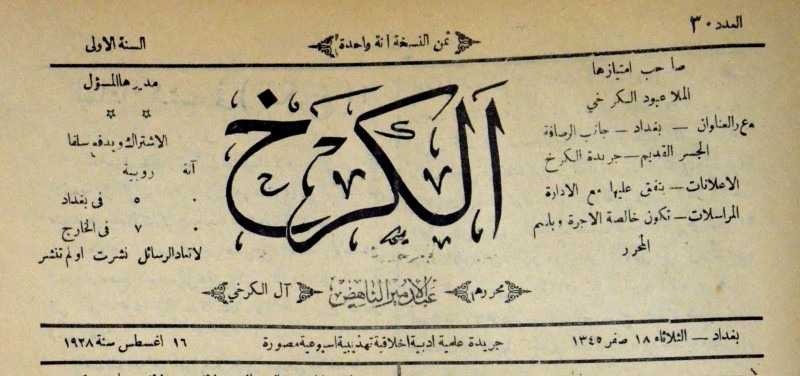 العدد ٣٠
ثمن النسخة آنة واحدة
السنة الاولى
صاحب امتيازها
الملا عبود الكرخي
العنوان — بغداد — جانب الرصافة
الجسر القديم — جريدة الكرخ
الاعلانات — يتفق عليها مع الادارة
المراسلات — تكون خالصة الاجرة وباسم
المحرر
الكرخ
مديرها المسؤل
الاشتراك ويدفع سلفا
آنة روبية
٠ ٥ في بغداد
٠ ٧ في الخارج
لاتعاد الرسائل نشرت او لم تنشر
محررها
عبد الامير الناهض
آل الكرخي
بغداد — الثلاثاء ١٨ صفر ١٣٤٥
جريدة علمية ادبية اخلاقية تهذيبية اسبوعية مصورة
١٦ اغسطس سنة ١٩٢٨